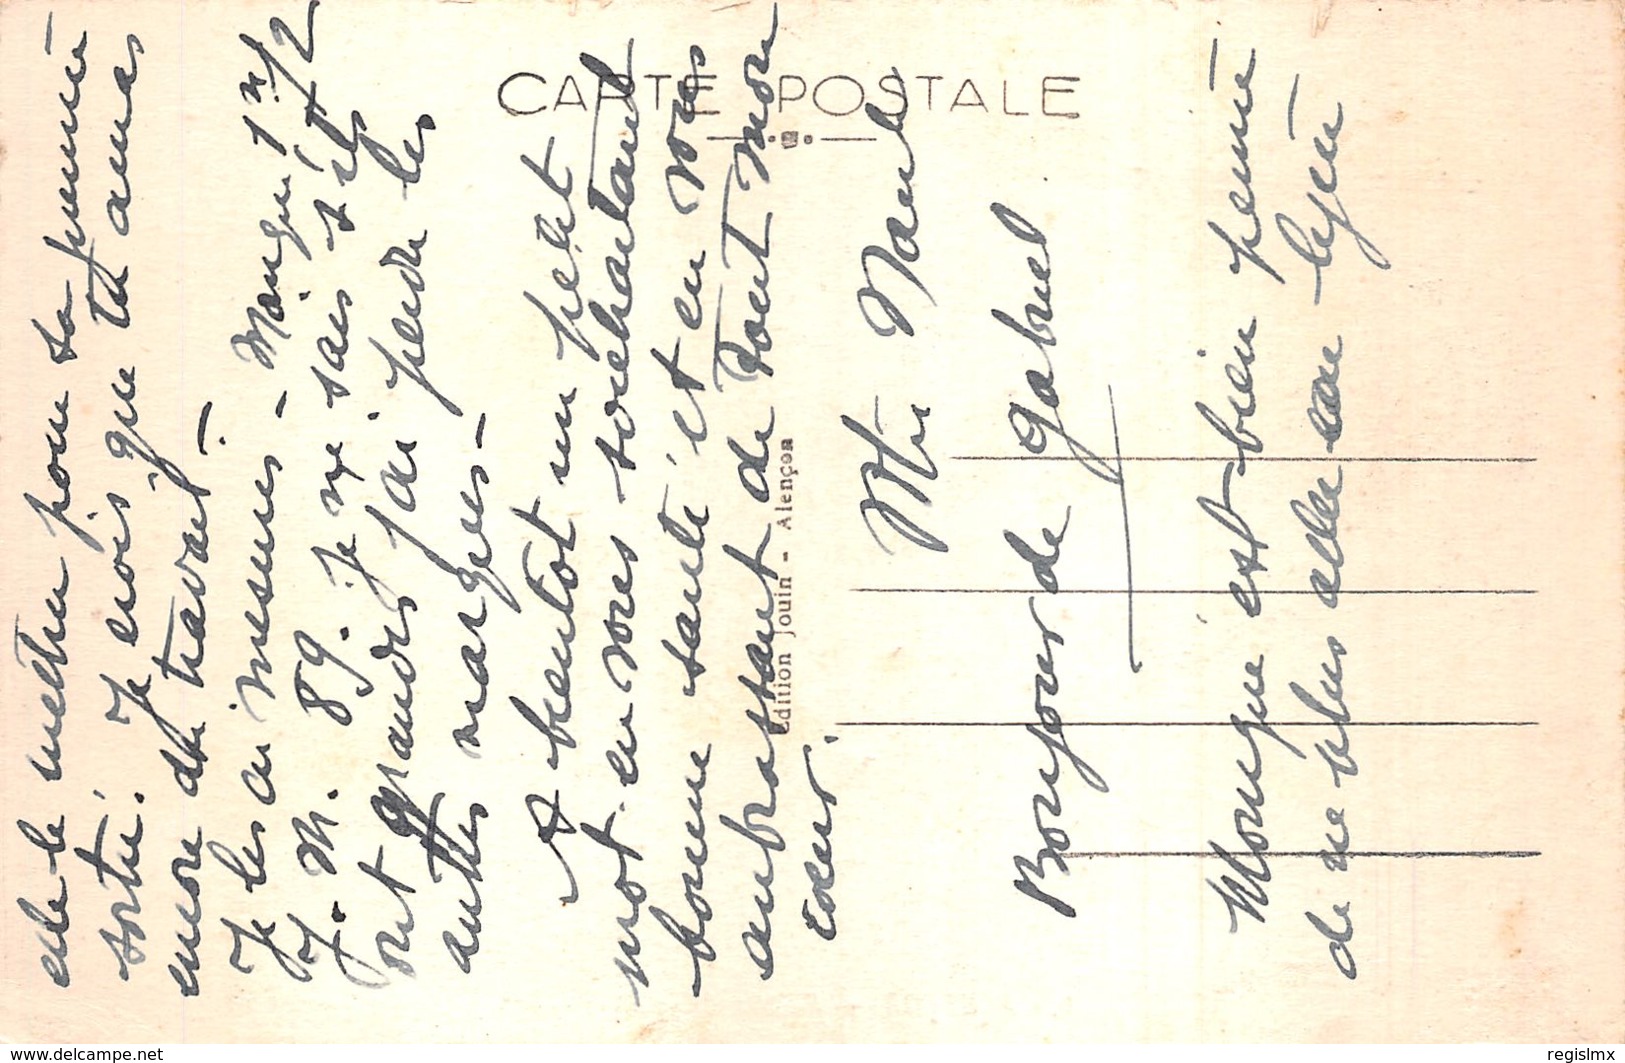 CARTE POSTALE
elle le mettra pour sa première
sortie. Je crois que tu auras
encore du travail.
Je les ai mesurés - Monique 1m12
J. M. 89. Je ne sais s'ils
ont grandis j'ai perdu les
autres marques -
A bientôt un petit
mot en vous souhaitant
bonne santé et en vous
embrassant de tout mon
cœur.
Edition Jouin - Alençon
Mr
Bonjour de Gabriel
Monique est bien peinée
de ne plus aller au lycée
www.delcampe.net
regislmx